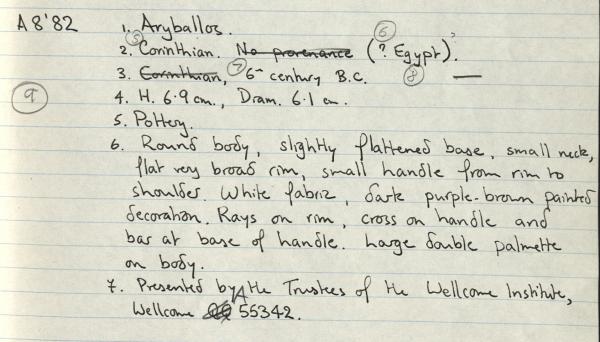 A8'82 1. Aryballos.
⑤ ⑥ ?
2. Corinthian. No provenance (? Egypt).
3. Corinthian, ⑦ 6th century B.C. ⑧ —
⑨ 4. H. 6.9 cm., Diam. 6.1 cm.
5. Pottery.
6. Round body, slightly flattened base, small neck,
flat very broad rim, small handle from rim to
shoulder. White fabric, dark purple-brown painted
decoration. Rays on rim, cross on handle and
bar at base of handle. Large double palmette
on body.
7. Presented by the Trustees of the Wellcome Institute,
Wellcome 55342.